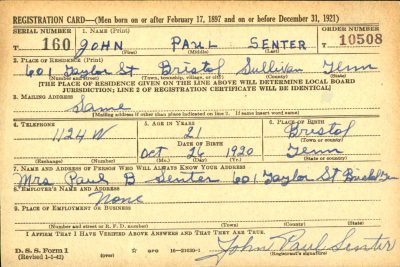 REGISTRATION CARD—(Men born on or after February 17, 1897 and on or before December 31, 1921)
SERIAL NUMBER 1. NAME (Print) ORDER NUMBER
T 160 JOHN PAUL SENTER T 10508
(First) (Middle) (Last)
2. PLACE OF RESIDENCE (Print)
601 Taylor St Bristol Sullivan Tenn
(Number and street) (Town, township, village, or city) (County) (State)
[THE PLACE OF RESIDENCE GIVEN ON THE LINE ABOVE WILL DETERMINE LOCAL BOARD
JURISDICTION; LINE 2 OF REGISTRATION CERTIFICATE WILL BE IDENTICAL]
3. MAILING ADDRESS
Same
[Mailing address if other than place indicated on line 2. If same insert word same]
4. TELEPHONE 5. AGE IN YEARS 6. PLACE OF BIRTH
1124 W 21 Bristol
DATE OF BIRTH (Town or county)
Oct 26 1920 Tenn
(Exchange) (Number) (Mo.) (Day) (Yr.) (State or country)
7. NAME AND ADDRESS OF PERSON WHO WILL ALWAYS KNOW YOUR ADDRESS
Mrs Paul B Senter 601 Taylor St Bristol Tenn
8. EMPLOYER'S NAME AND ADDRESS
None
9. PLACE OF EMPLOYMENT OR BUSINESS
(Number and street or R. F. D. number) (Town) (County) (State)
I AFFIRM THAT I HAVE VERIFIED ABOVE ANSWERS AND THAT THEY ARE TRUE.
D. S. S. Form 1 ☆ GPO
(Revised 1-1-42) (over) John Paul Senter
(Registrant's signature)